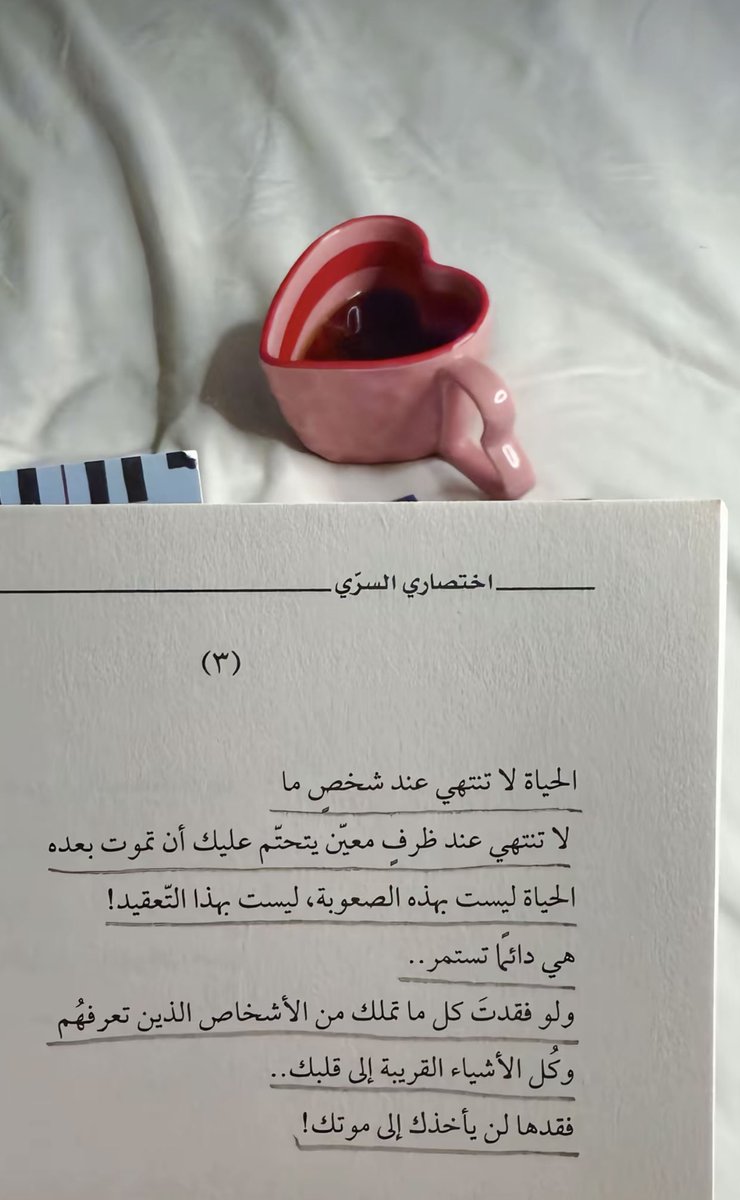 اختصاري السرّي
(٣)
الحياة لا تنتهي عند شخصٍ ما
لا تنتهي عند ظرفٍ معيّن يتحتّم عليك أن تموت بعده
الحياة ليست بهذه الصعوبة، ليست بهذا التّعقيد!
هي دائمًا تستمر..
ولو فقدتَ كل ما تملك من الأشخاص الذين تعرفهُم
وكُل الأشياء القريبة إلى قلبك..
فقدها لن يأخذك إلى موتك!